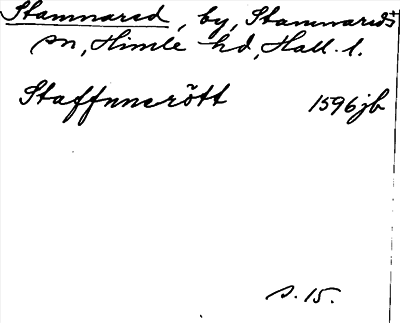 Stamnared, by, Stamnareds
sn, Himle hd, Hall. l.
Staffnnerött 1596 jb
s. 15.